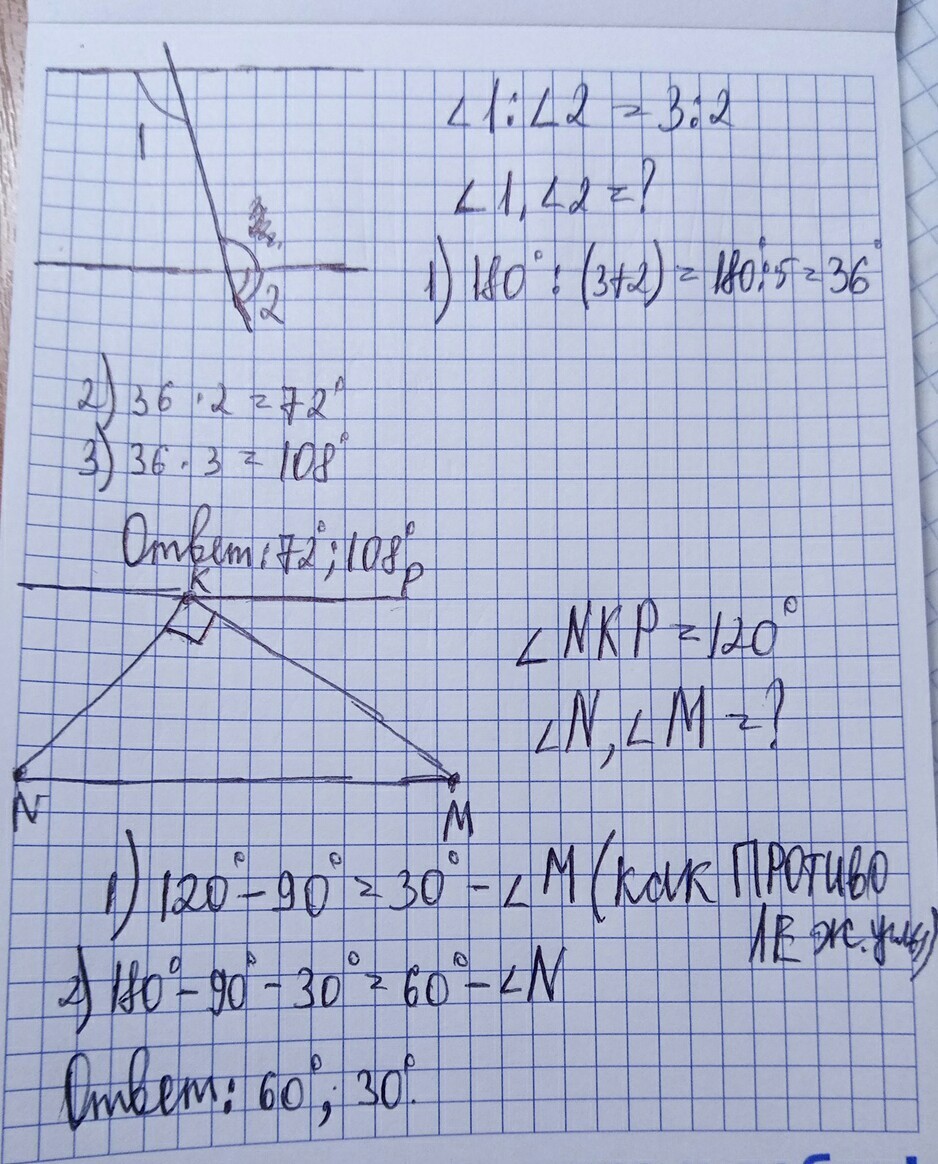 ∠1:∠2 = 3:2
1
∠1, ∠2 = ?
1) 180° : (3+2) = 180:5 = 36°
2
2) 36 · 2 = 72°
3) 36 · 3 = 108°
Ответ: 72°; 108°
K
P
∠NKP = 120°
∠N, ∠M = ?
N
M
1) 120° - 90° = 30° - ∠M (как ПРОТИВО
ЛЕЖ. углы)
2) 180° - 90° - 30° = 60° - ∠N
Ответ: 60°; 30°.